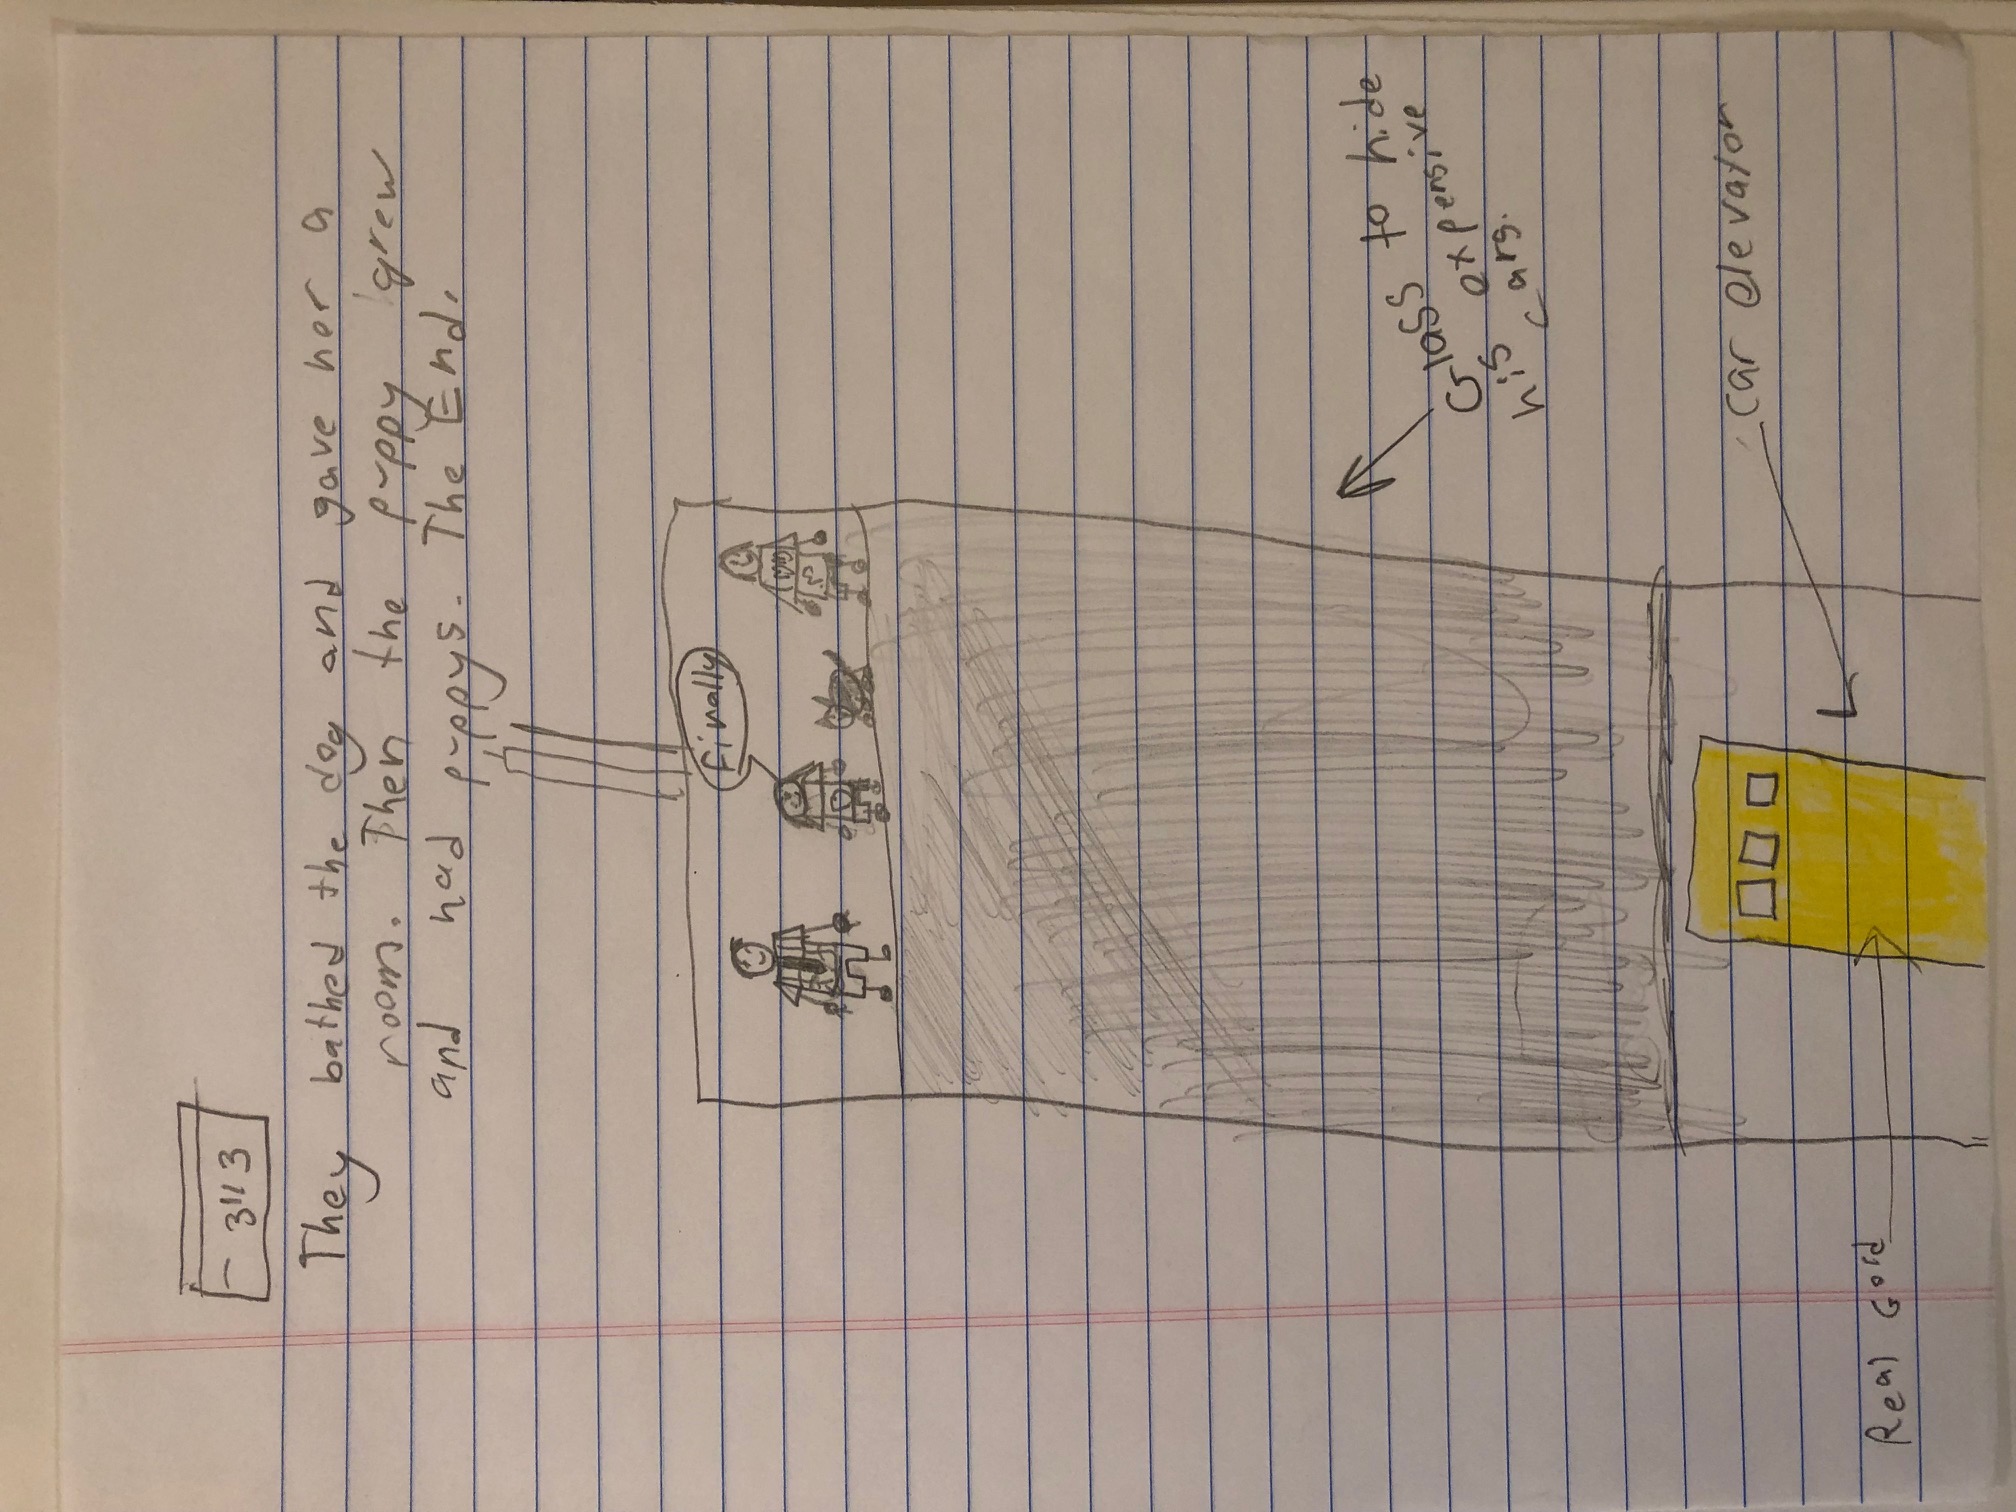 - 3113
They bathed the dog and gave her a
room. Then the puppy grew
and had puppys. The End.
Finally
Glass to hide
his expensive
cars.
car elevator
Real Gold